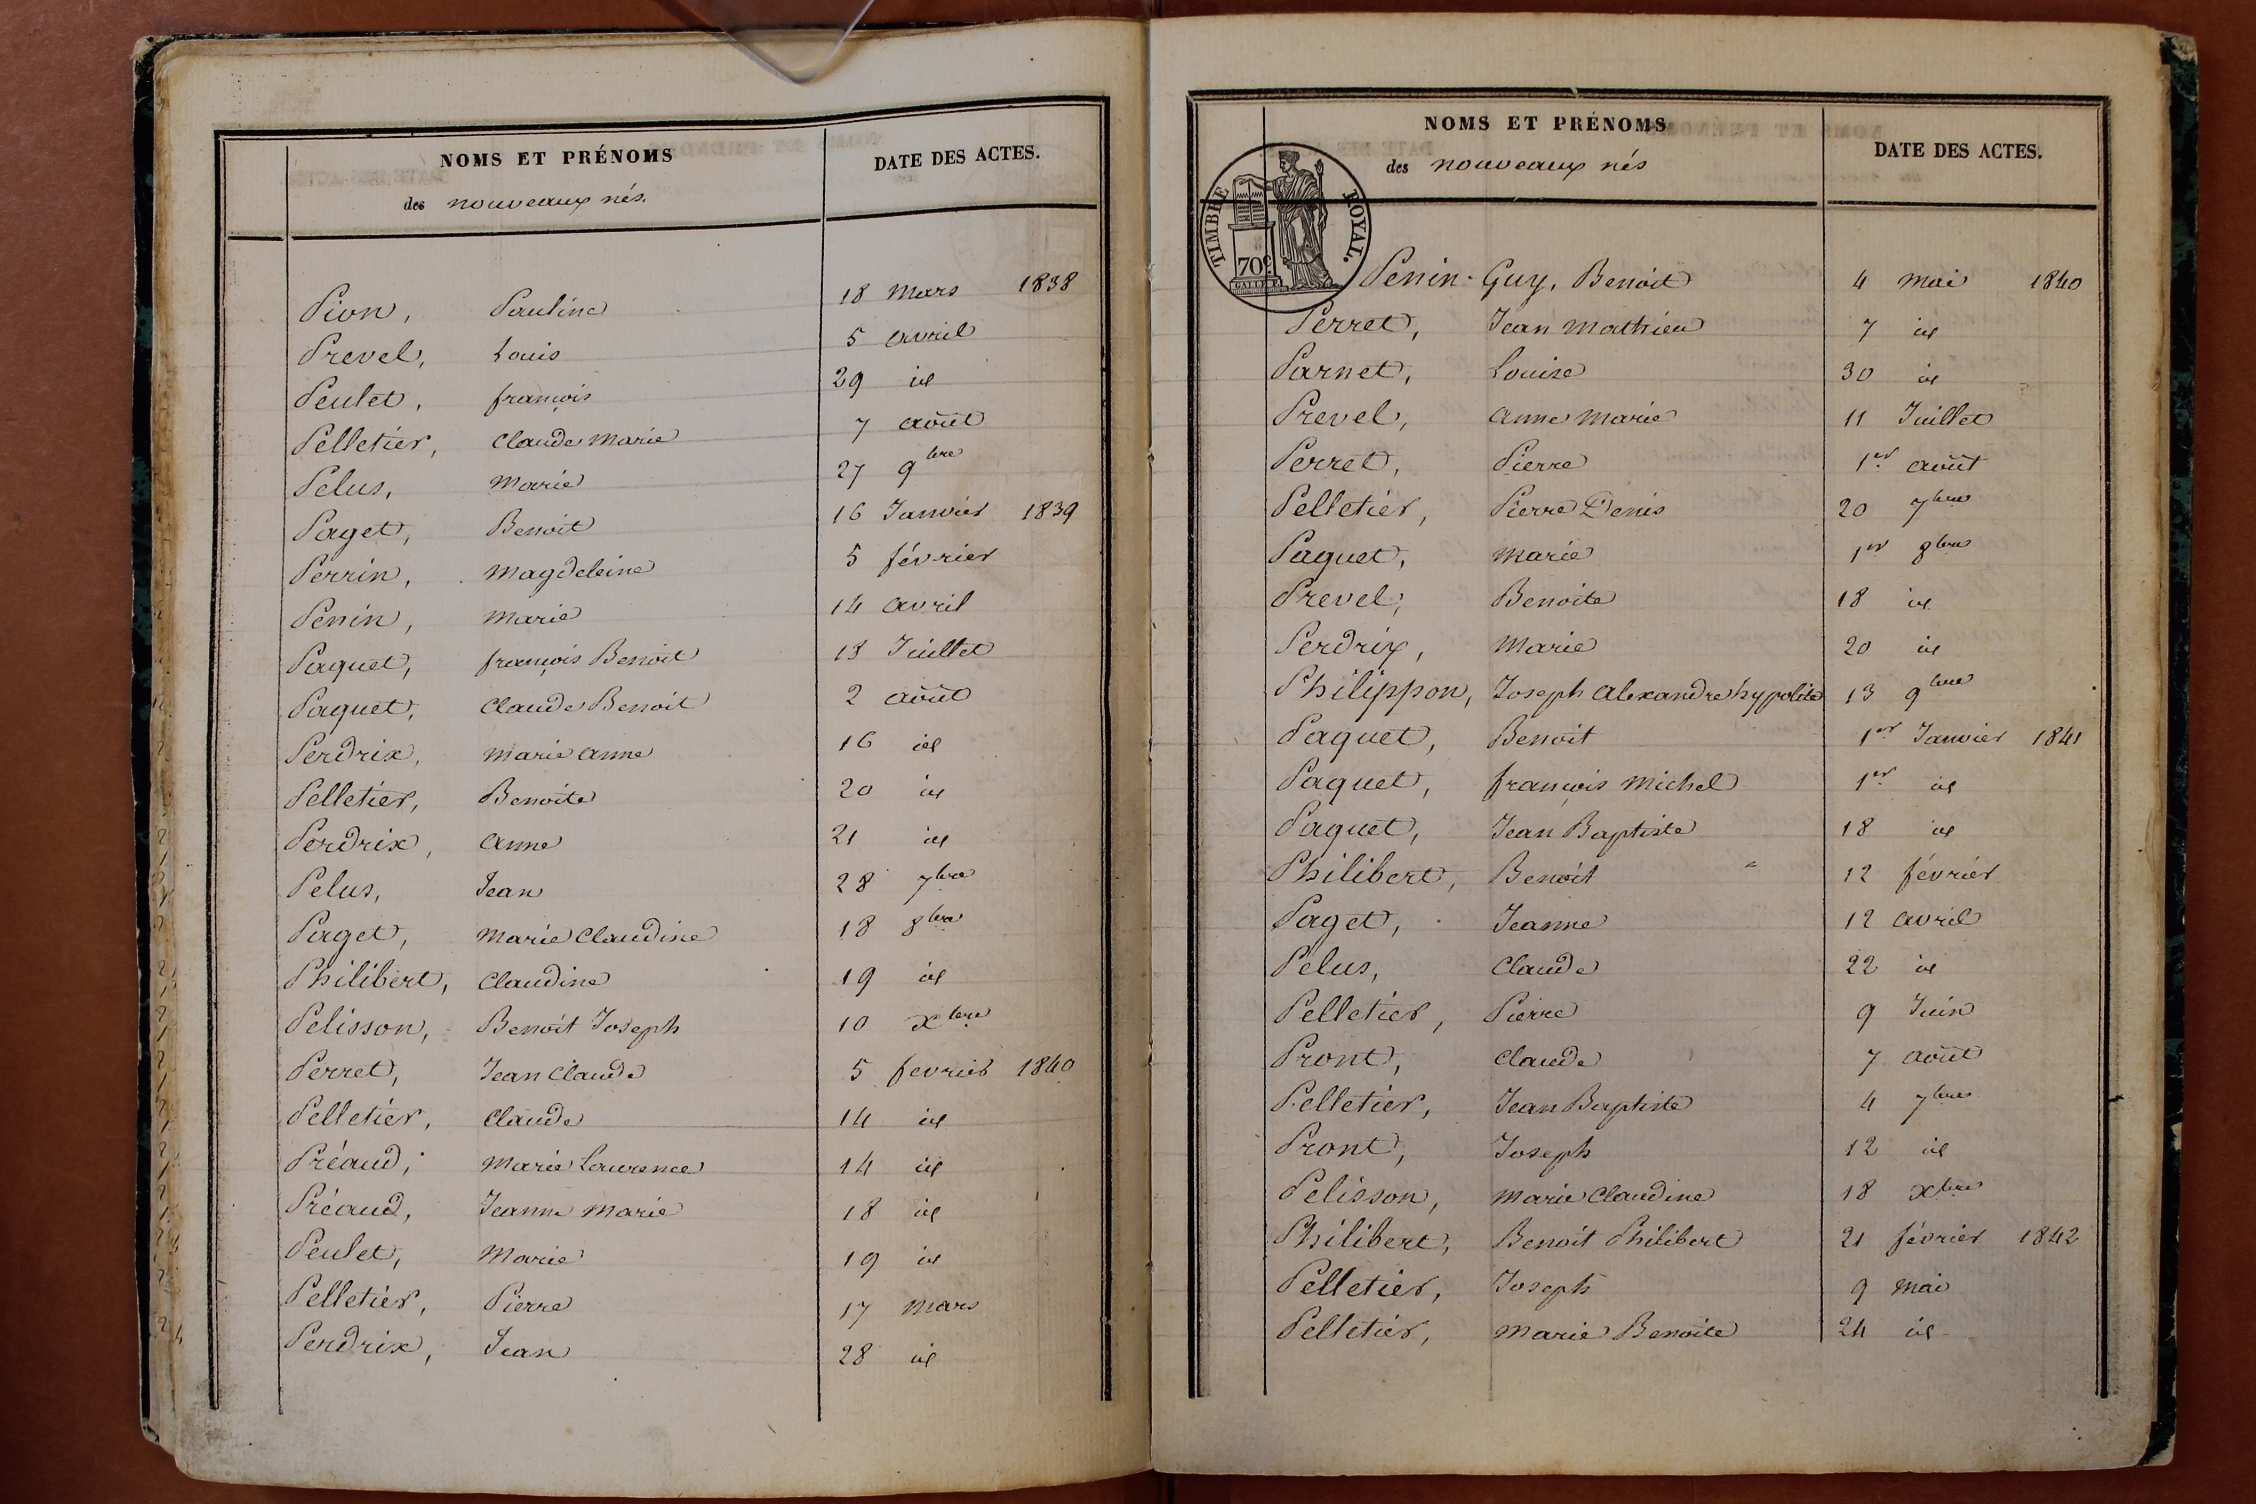 NOMS ET PRÉNOMS
des nouveaux nés.
DATE DES ACTES.
Pion, Pauline 18 mars 1838
Prevel, Louis 5 avril
Peulet, françois 29 id
Pelletier, Claude Marie 7 août
Pelus, Marie 27 9bre
Paget, Benoit 16 Janvier 1839
Perrin, Magdeleine 5 février
Penin, Marie 14 avril
Paquet, françois Benoit 13 Juillet
Paquet, Claude Benoit 2 août
Perdrix, Marie Anne 16 id
Pelletier, Benoite 20 id
Perdrix, Anne 21 id
Pelus, Jean 28 7bre
Paget, Marie Claudine 18 8bre
Philibert, Claudine 19 id
Pelisson, Benoit Joseph 10 Xbre
Perret, Jean Claude 5 fevrier 1840
Pelletier, Claude 14 id
Préaud, Marie Laurence 14 id
Préaud, Jeanne Marie 18 id
Peulet, Marie 19 id
Pelletier, Pierre 17 mars
Perdrix, Jean 28 id
NOMS ET PRÉNOMS
des nouveaux nés
DATE DES ACTES.
TIMBRE ROYAL.
70c
Penin-Guy, Benoit 4 mai 1840
Perret, Jean Mathieu 7 id
Parnet, Louise 30 id
Prevel, Anne Marie 11 Juillet
Perret, Pierre 1er août
Pelletier, Pierre Denis 20 7bre
Paquet, Marie 1er 8bre
Prevel, Benoite 18 id
Perdrix, Marie 20 id
Philippon, Joseph Alexandre hypolite 13 9bre
Paquet, Benoit 1er Janvier 1841
Paquet, françois Michel 1er id
Paquet, Jean Baptiste 18 id
Philibert, Benoit 12 février
Paget, Jeanne 12 avril
Pelus, Claude 22 id
Pelletier, Pierre 9 Juin
Pront, Claude 7 août
Pelletier, Jean Baptiste 4 7bre
Pront, Joseph 12 id
Pelisson, Marie Claudine 18 Xbre
Philibert, Benoit Philibert 21 février 1842
Pelletier, Joseph 9 mai
Pelletier, Marie Benoite 24 id